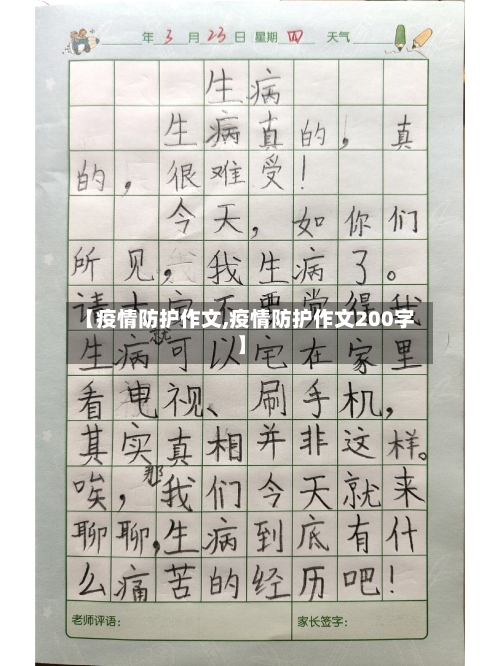 年 3 月 23 日 星期 四 天气
生病
生病真的，真
的，很难受！
今天，如你们
所见，我生病了。
请大家不要觉得我
【疫情防护作文,疫情防护作文200字
】
生病就可以宅在家里
看电视、刷手机，
其实真相并非这样。
唉，那我们今天就来
聊聊，生病到底有什
么痛苦的经历吧！
老师评语： 家长签字：